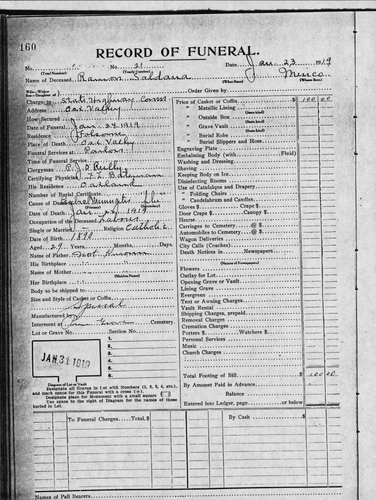 160
RECORD OF FUNERAL.
No. 21 Date Jan 23 1919
(Total Number) (Yearly Number)
Name of Deceased Ramon Saldana
Wife-Widow
Son-Daughter of
Order Given by
Charge to State Highway Comm
Address Oak Valley
How Secured
Date of Funeral Jan 24 1919
Residence Folsom
Place of Death Oak Valley
Funeral Services at Parlors
Time of Funeral Service
Clergyman Reilly
Certifying Physician
His Residence Oakland
Number of Burial Certificate
Cause of Death
Date of Death Jan 22 1919
Occupation of the Deceased Labour
Single or Married Religion Catholic
Date of Birth 1890
Aged 29 Years, Months, Days
Name of Father Not Known
His Birthplace
Name of Mother
Her Birthplace
Body to be shipped to
Size and Style of Casket or Coffin
Special
Manufactured by
Interment at Cemetery.
Lot or Grave No. Section No.
JAN 31 1919
Diagram of Lot or Vault
Designate all Graves in Lot with Numbers (1, 2, 3, 4, etc.),
and mark space for this Funeral with a cross (+).
Designate place for Monument with a small square
Use space to the right of Diagram for the names of those
buried in Lot.
Price of Casket or Coffin $ 100 00
" Metallic Lining
" Outside Box
" Grave Vault
" Burial Robe
" Burial Slippers and Hose
Engraving Plate
Embalming Body (with Fluid)
Washing and Dressing
Shaving
Keeping Body on Ice
Disinfecting Rooms
Use of Catafalque and Drapery
" Folding Chairs
" Candelabrum and Candles
Gloves $ Crape $
Door Crape $ Gloves $
Hearse
Carriages to Cemetery @ $
Automobiles to Cemetery @ $
Wagon Deliveries
City Calls (Coaches)
Death Notices in Newspapers
(Names of Newspapers)
Flowers
Outlay for Lot
Opening Grave or Vault
Lining Grave
Evergreen
Tent or Awning Charges
Vault Rental
Shipping Charges, prepaid
Removal Charges
Cremation Charges
Porters $ Watchers $
Personal Services
Music
Church Charges
Total Footing of Bill $ 100 00
By Amount Paid in Advance
Balance
Entered into Ledger, page or below $
To Funeral Charges, Total $ By Cash $
Names of Pall Bearers